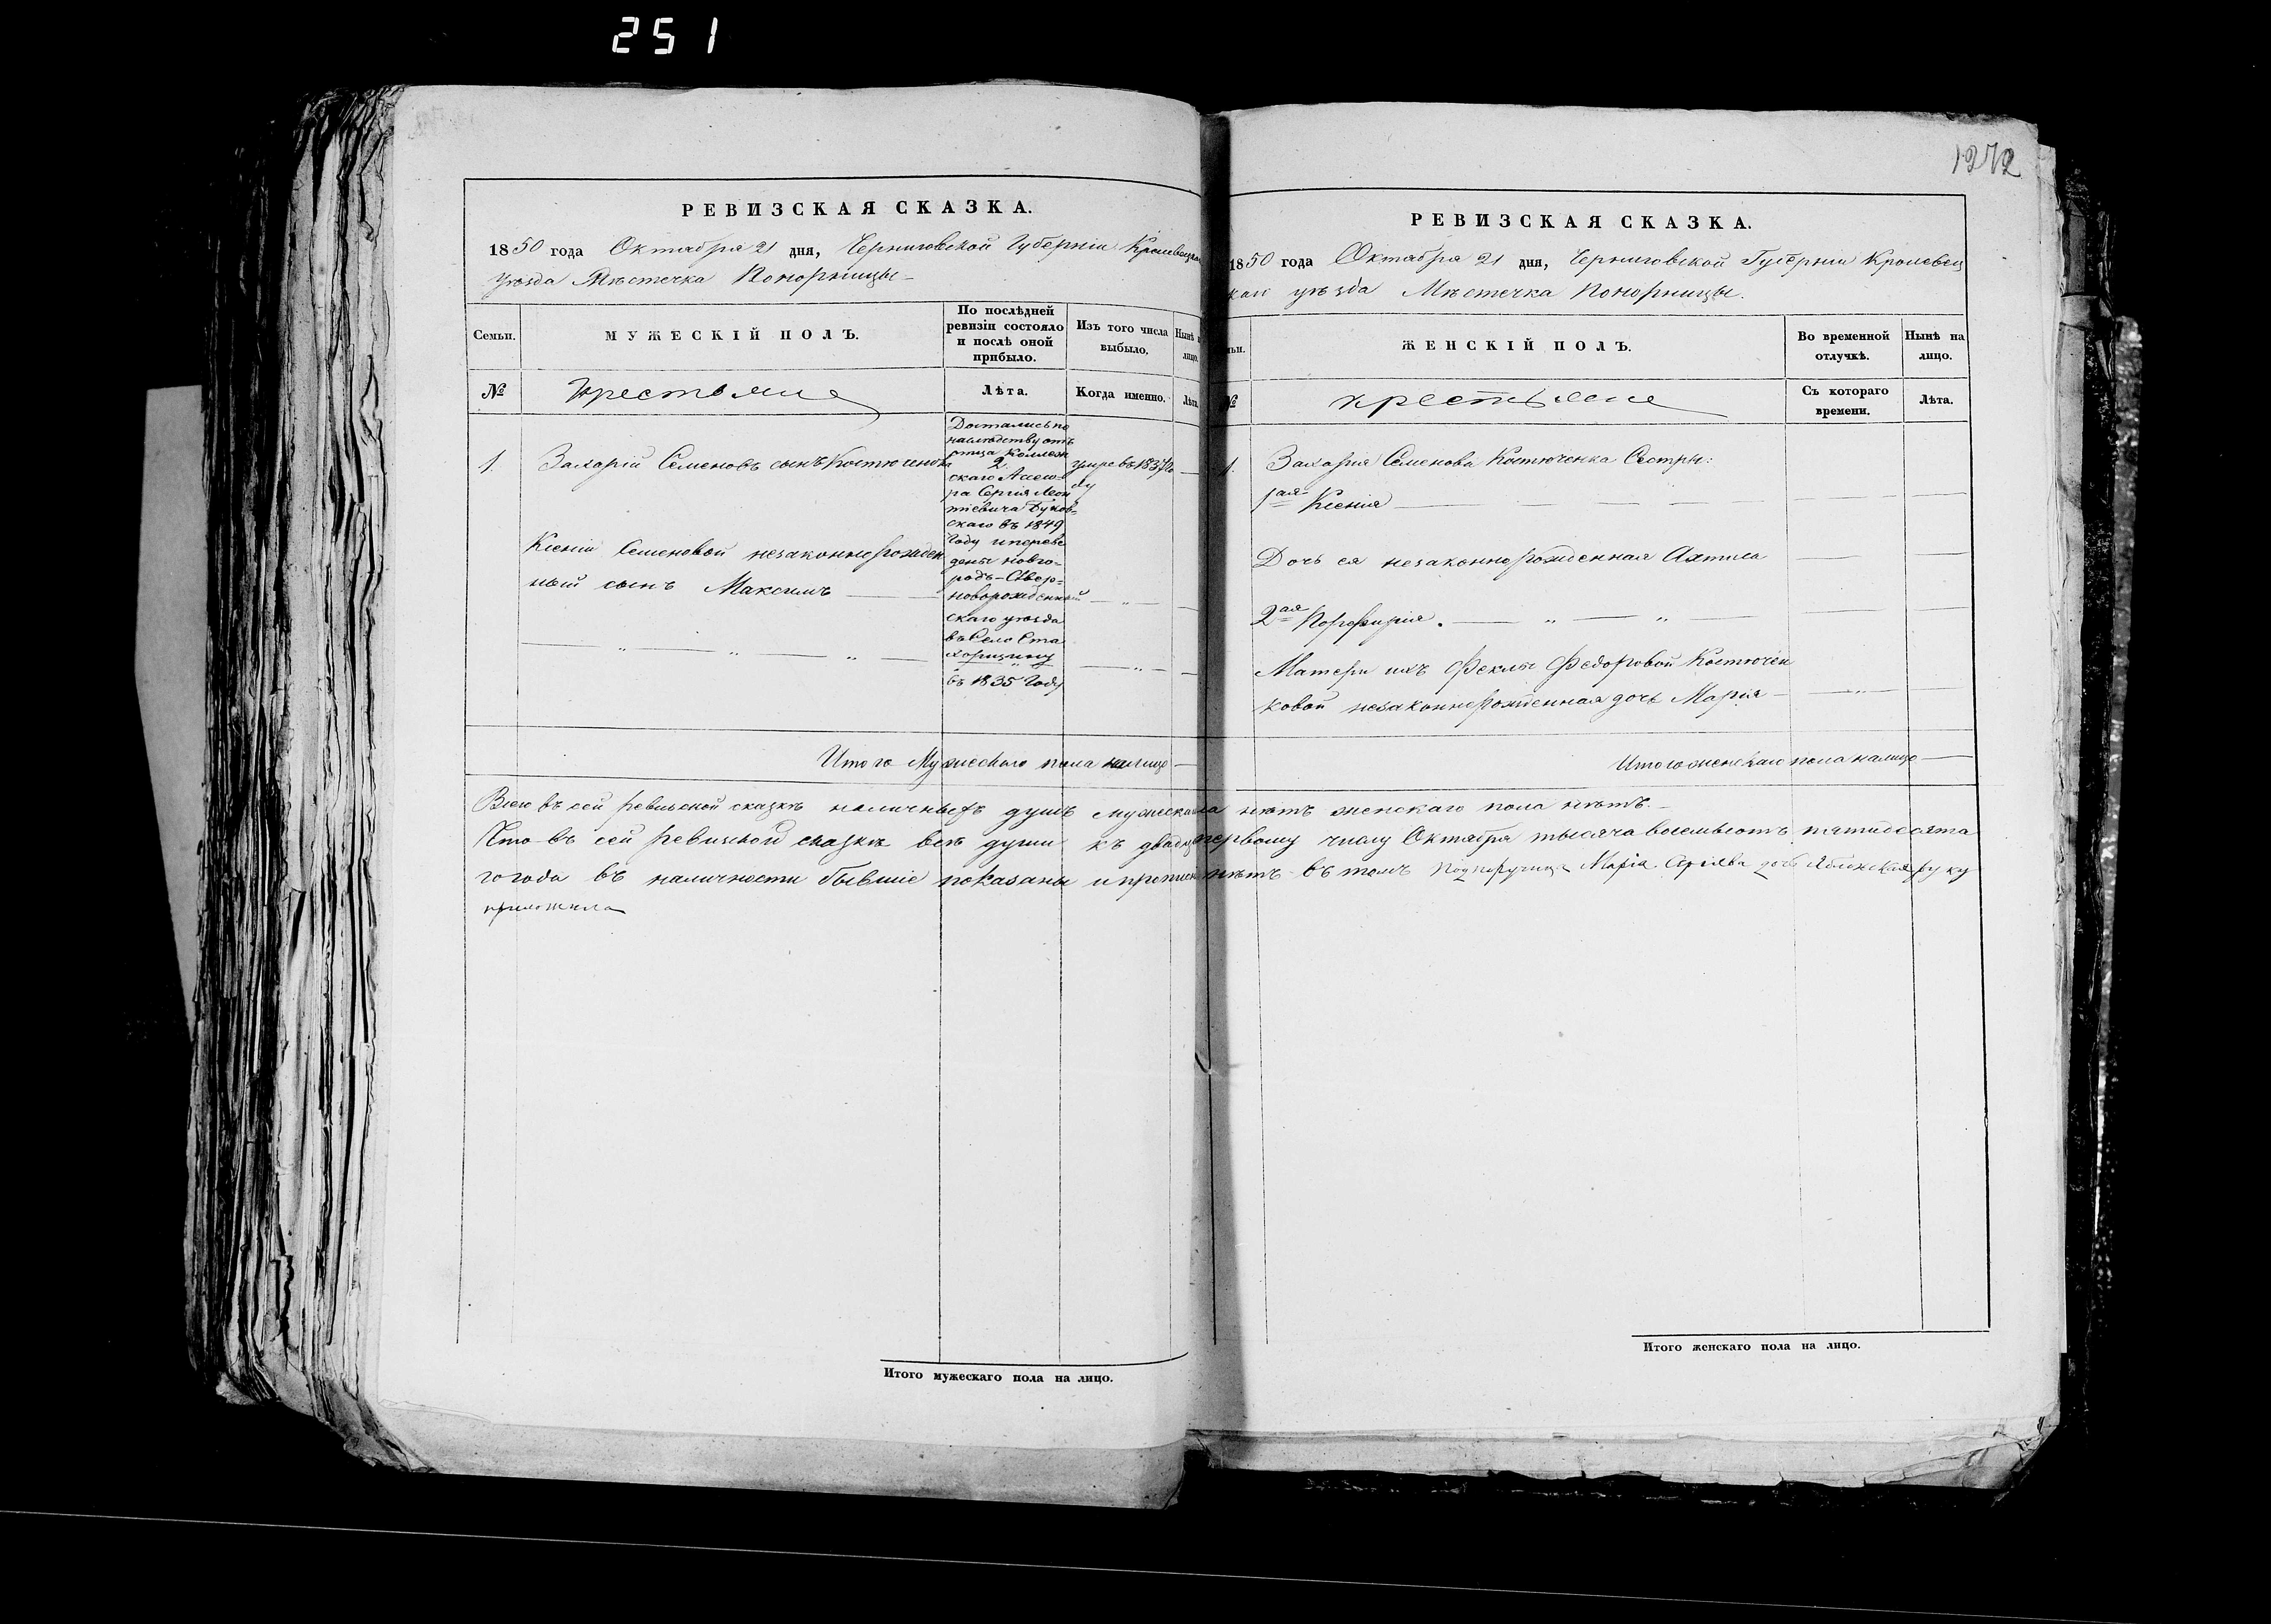 251
1272
РЕВИЗСКАЯ СКАЗКА.
1850 года Октября 21 дня, Черниговской Губерніи Кролевецка
уѣзда Мѣстечка Понорницы
Семьи.
МУЖЕСКІЙ ПОЛЪ.
По послѣдней
ревизіи состояло
и послѣ оной
прибыло.
Изъ того числа
выбыло.
Нынѣ
лицо.
№
крестьяне
Лѣта.
Когда именно.
Лѣта.
1. Захарій Семеновъ сынъ Костюченко
2
умре въ 1837 го
ду
Достались по
наслѣдству отъ
отца Коллеж
скаго Ассесо
ра Сергія Леон
тіевича Буков-
скаго въ 1849
Году и переве
дены Новго-
родъ-Сѣвер-
скаго уѣзда
въ Село Ста
въ 1835 Году
Ксеніи Семеновой незаконнорожден
ный сынъ Максимъ
новорожденный
Итого Мужескаго пола налицо
РЕВИЗСКАЯ СКАЗКА.
1850 года Октября 21 дня, Черниговской Губерніи Кролевец
каго уѣзда Мѣстечка Понорницы.
ьи.
ЖЕНСКІЙ ПОЛЪ.
Во временной
отлучкѣ.
Нынѣ на
лицо.
№
крестьяне
Съ котораго
времени.
Лѣта.
1. Захарія Семенова Костюченка Сестры:
1ая Ксенія
Дочь ея незаконнорожденная
2ая Порфирія
Матери ихъ Феклы Федоровой Костючен
ковой незаконнорожденная дочь Марія
Итого женскаго пола налицо
Всего въ сей ревизской сказкѣ наличныхъ душъ мужеска ла нѣтъ женскаго пола нѣтъ.
Что въ сей ревизской сказкѣ всѣ души къ двадц первому числу Октября тысяча восемьсотъ пятидесята
го года въ наличности бывшіе показаны и прописн нѣтъ въ томъ Подпоручица Марія дочь руку
приложила
Итого мужескаго пола на лицо.
Итого женскаго пола на лицо.